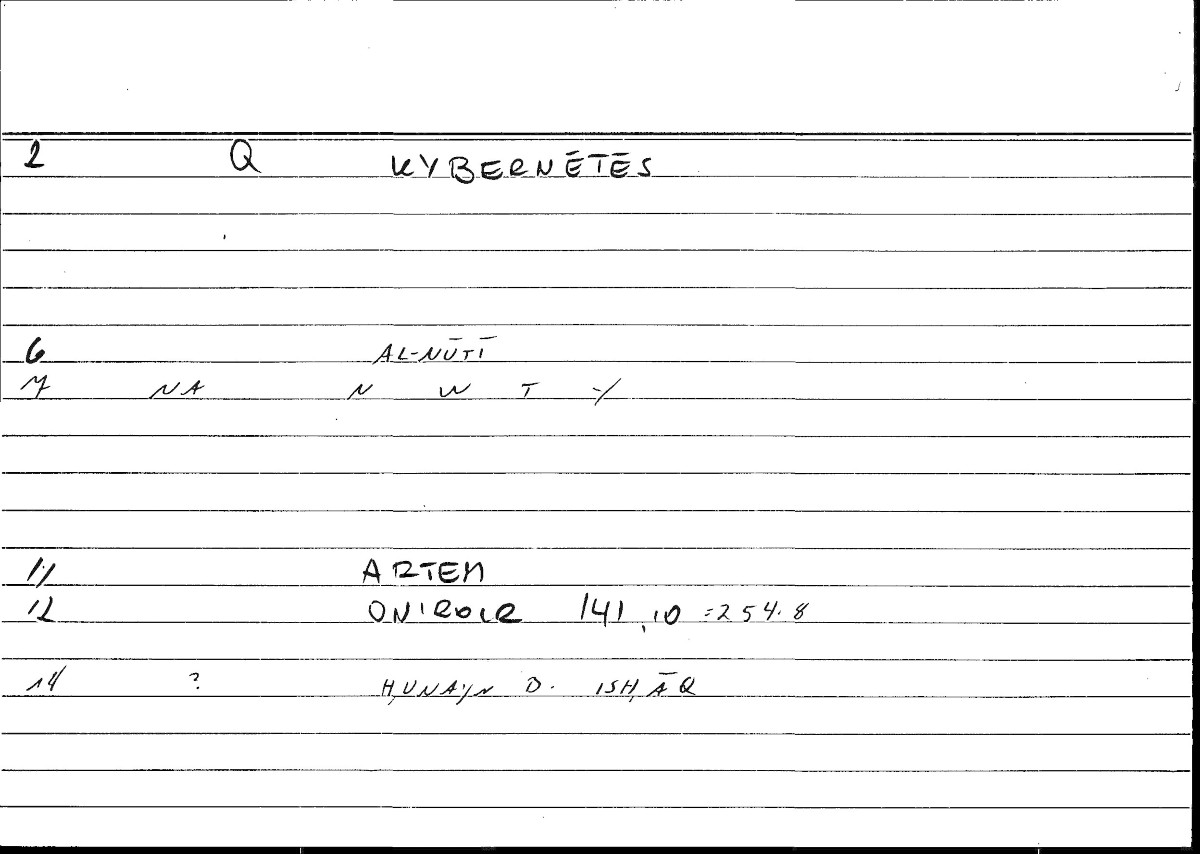 2 Q KYBERNĒTĒS
6 AL-NŪTĪ
7 NA N W T Y
11 ARTEM
12 ONIROCR 141,10 =254.8
14 ? ḤUNAYN B. ISḤĀQ